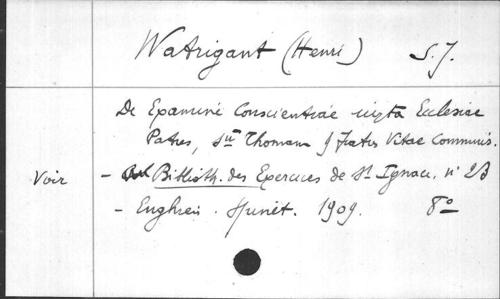 Watrigant (Henri) S. J.
De Examine Conscientiae iuxta Ecclesiae
Patres, Sum Thomam & Fratres Vitae Communis.
Voir - Biblioth. des Exercices de St Ignace. n° 23
- Enghien. 1909. 8°